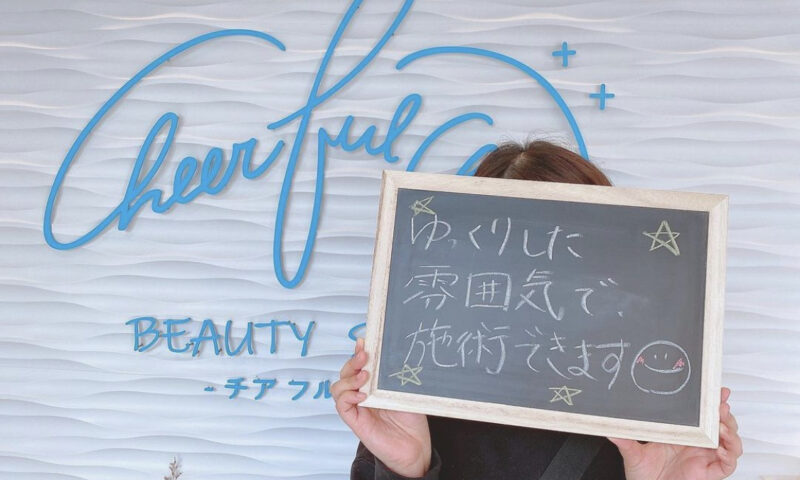 Cheerful
BEAUTY
-チアフル
ゆっくりした
雰囲気で、
施術できます